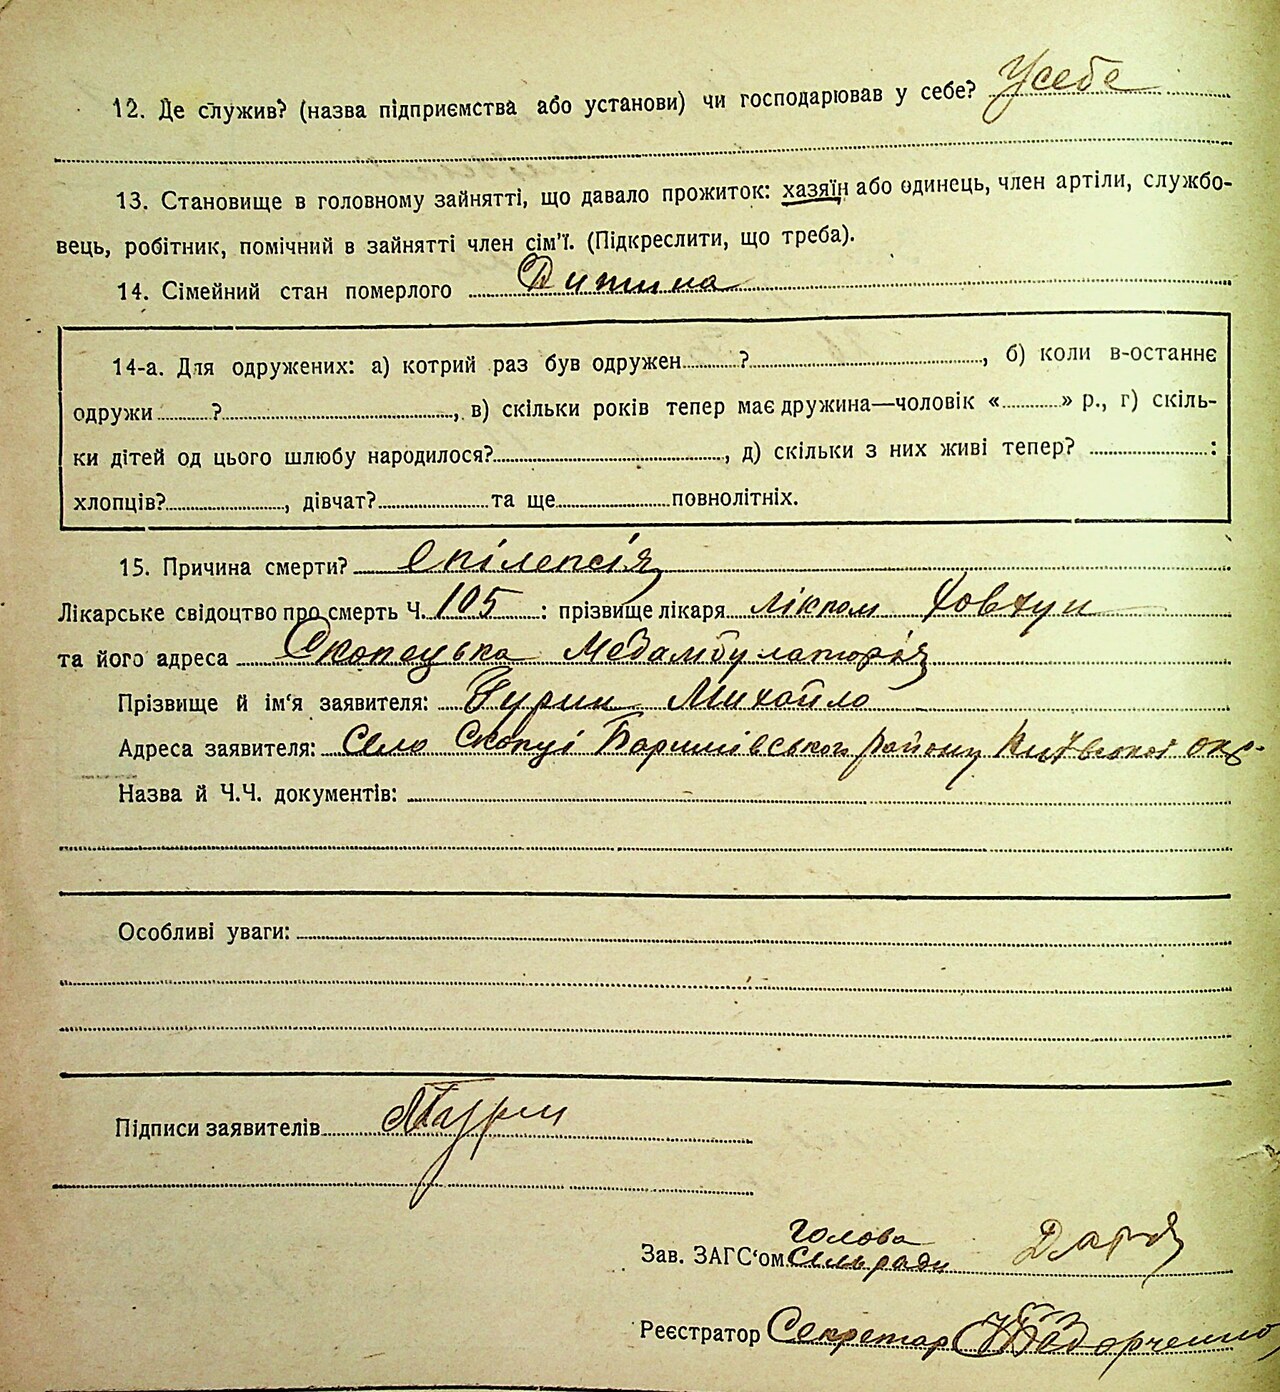 12. Де служив? (назва підприємства або установи) чи господарював у себе? У себе
13. Становище в головному зайнятті, що давало прожиток: хазяїн або одинець, член артіли, службо-
вець, робітник, помічний в зайнятті член сім'ї. (Підкреслити, що треба).
14. Сімейний стан померлого Дитина
14-а. Для одружених: а) котрий раз був одружен ?, б) коли в-останнє
одружи ?, в) скільки років тепер має дружина—чоловік « » р., г) скіль-
ки дітей од цього шлюбу народилося?, д) скільки з них живі тепер? :
хлопців?, дівчат? та ще повнолітніх.
15. Причина смерти? епілепсія
Лікарське свідоцтво про смерть Ч. 105 : прізвище лікаря лікпом Ковтун
та його адреса Скопецька Медамбулаторія
Прізвище й ім'я заявителя: Гурин Михайло
Адреса заявителя: село Скопці Баришівського району Київської окр.
Назва й Ч.Ч. документів:
Особливі уваги:
Підписи заявителів
голова
Зав. ЗАГС'ом сільради
Реєстратор Секретар